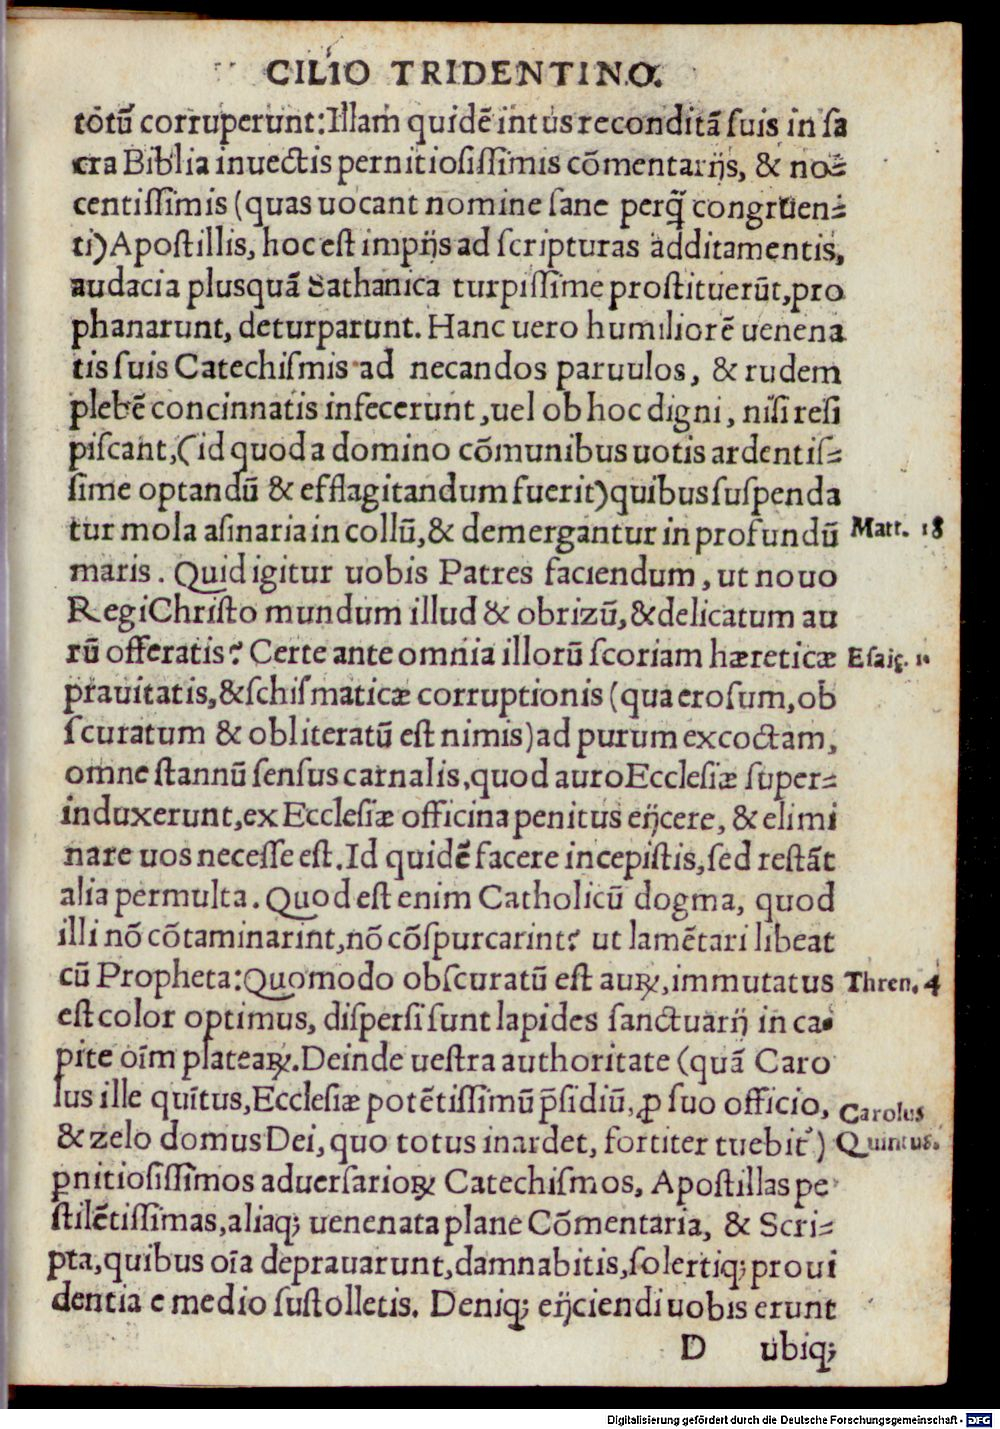 CILIO TRIDENTINO.
totũ corruperunt: Illam quidẽ intus reconditã suis in sa
cra Biblia inuectis pernitiosissimis cõmentarijs, & no⸗
centissimis (quas uocant nomine sane perq̃ congruen⸗
ti) Apostillis, hoc est impijs ad scripturas additamentis,
audacia plusquã Sathanica turpissime prostituerũt, pro
phanarunt, deturparunt. Hanc uero humiliorẽ uenena
tis suis Catechismis ad necandos paruulos, & rudem
plebẽ concinnatis infecerunt, uel ob hoc digni, nisi resi
piscant, (id quod a domino cõmunibus uotis ardentis⸗
sime optandũ & efflagitandum fuerit) quibus suspenda
tur mola asinaria in collũ, & demergantur in profundũ Matt. 18
maris. Quid igitur uobis Patres faciendum, ut nouo
Regi Christo mundum illud & obrizũ, & delicatum au
rũ offeratis? Certe ante omnia illorũ scoriam hæreticæ Esaię. 1.
prauitatis, & schismaticæ corruptionis (qua erosum, ob
scuratum & obliteratũ est nimis) ad purum excoctam,
omne stannũ sensus carnalis, quod auro Ecclesiæ super⸗
induxerunt, ex Ecclesiæ officina penitus eijcere, & elimi
nare uos necesse est. Id quidẽ facere incepistis, sed restãt
alia permulta. Quod est enim Catholicũ dogma, quod
illi nõ cõtaminarint, nõ cõspurcarint? ut lamẽtari libeat
cũ Propheta: Quomodo obscuratũ est auꝝ, immutatus Thren. 4
est color optimus, dispersi sunt lapides sanctuarij in ca⸗
pite oĩm plateaꝝ. Deinde uestra authoritate (quã Caro
lus ille quĩtus, Ecclesiæ potẽtissimũ p̃sidiũ, ꝓ suo officio, Carolus
& zelo domus Dei, quo totus inardet, fortiter tuebit᷑) Quintus.
ꝑnitiosissimos aduersarioꝝ Catechismos, Apostillas pe
stilẽtissimas, aliaqꝫ uenenata plane Cõmentaria, & Scri⸗
pta, quibus oĩa deprauarunt, damnabitis, solertiqꝫ proui
dentia e medio sustolletis. Deniqꝫ eijciendi uobis erunt
D ubiqꝫ
Digitalisierung gefördert durch die Deutsche Forschungsgemeinschaft - DFG